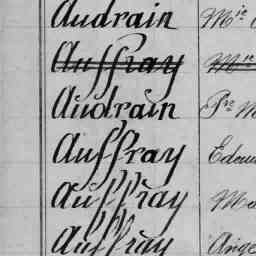 Audrain Mie
Auffray Mie
Audrain Pre M
Auffray Edou
Auffray Ma
Auffray Ange